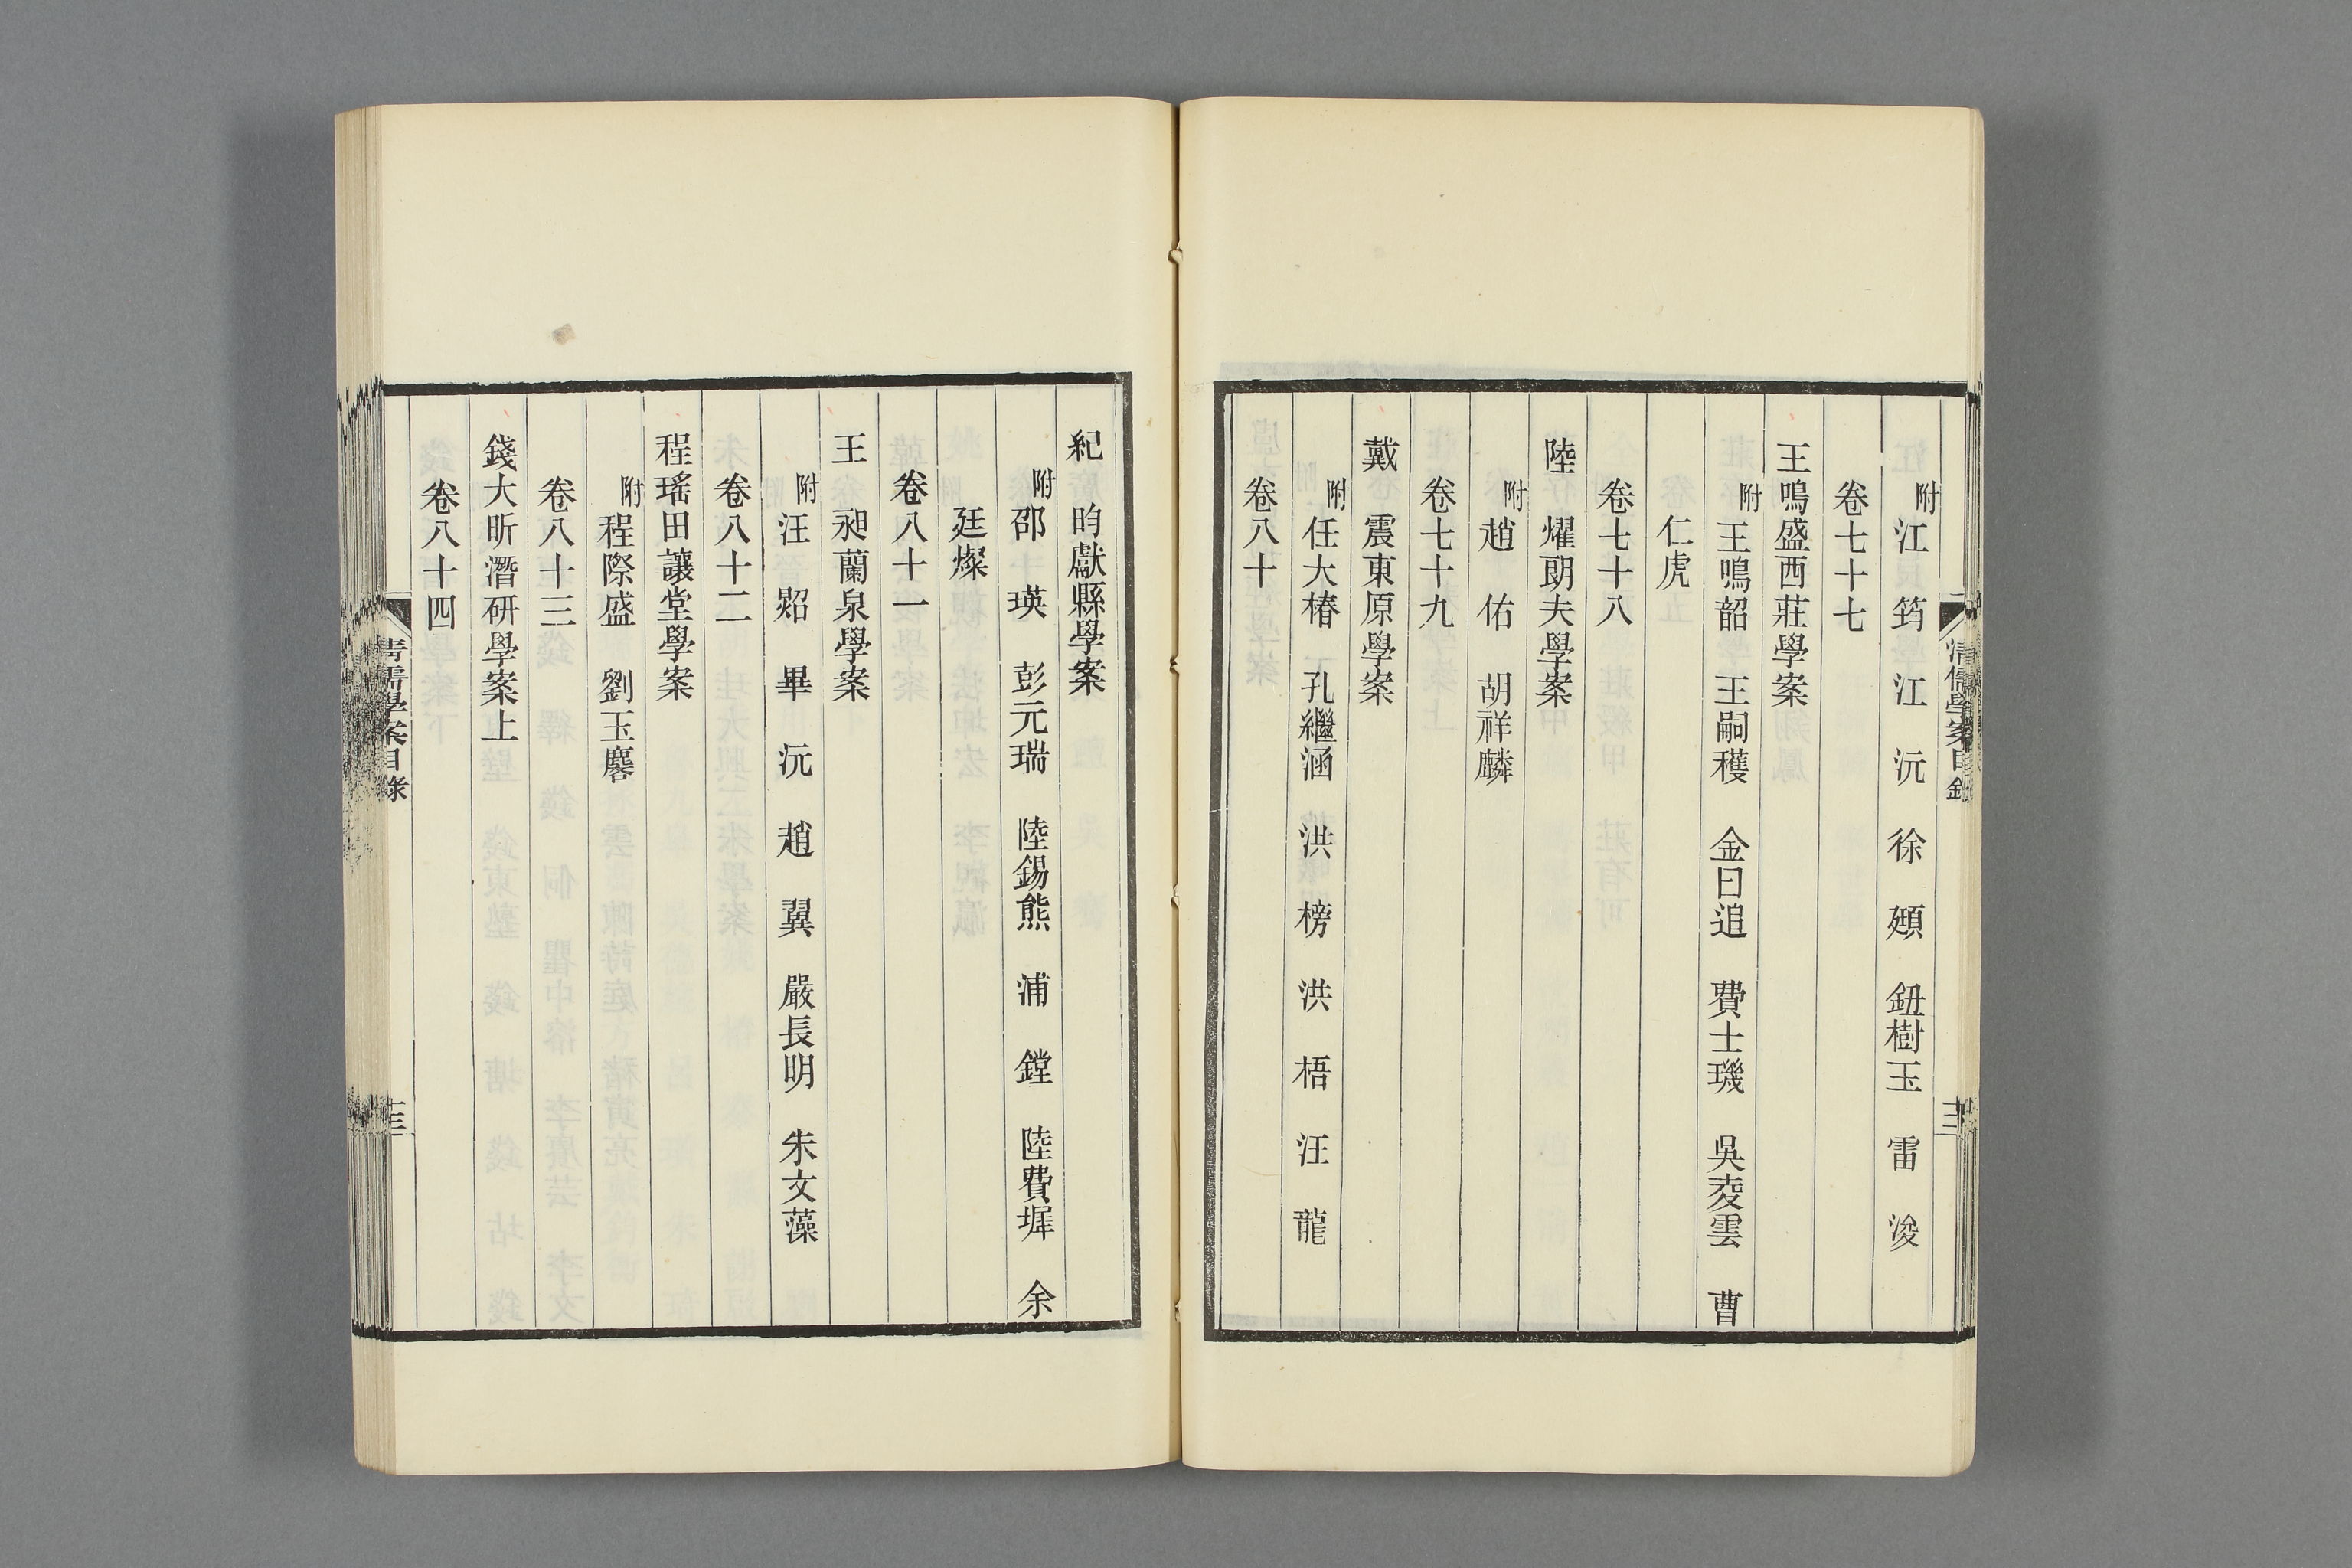 附江筠 江沅 徐頲 鈕樹玉 雷浚
卷七十七
王鳴盛西莊學案
附王鳴韶 王嗣穫 金曰追 費士璣 吳夌雲 曹
仁虎
卷七十八
陸燿朗夫學案
附趙佑 胡祥麟
卷七十九
戴震東原學案
附任大椿 孔繼涵 洪榜 洪梧 汪龍
卷八十
清儒學案目錄
紀昀獻縣學案
附邵瑛 彭元瑞 陸錫熊 浦鏜 陸費墀 余
廷燦
卷八十一
王昶蘭泉學案
附汪炤 畢沅 趙翼 嚴長明 朱文藻
卷八十二
程瑤田讓堂學案
附程際盛 劉玉麐
卷八十三
錢大昕潛研學案上
卷八十四
清儒學案目錄